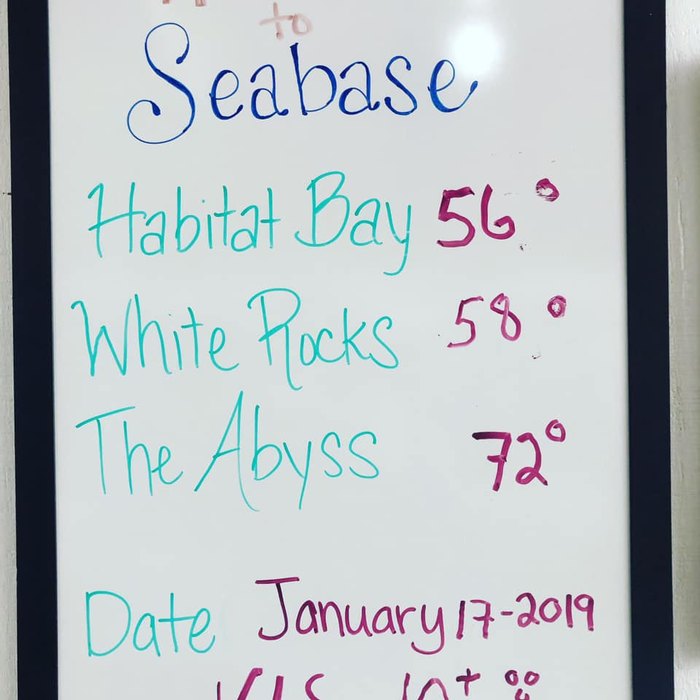 to
Seabase
Habitat Bay 56°
White Rocks 58°
The Abyss 72°
Date January 17-2019